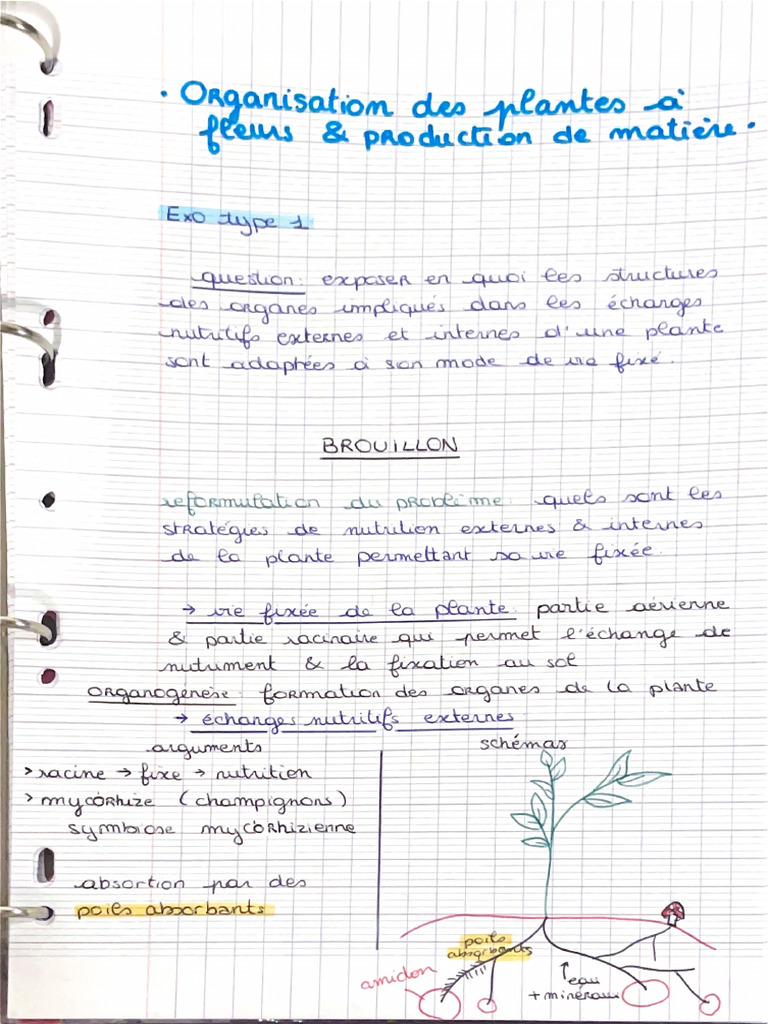 • Organisation des plantes à
fleurs & production de matière.
Exo type 1
question: exposer en quoi les structures
des organes impliqués dans les échanges
nutritifs externes et internes d'une plante
sont adaptées à son mode de vie fixé.
BROUILLON
reformulation du problème: quels sont les
stratégies de nutrition externes & internes
de la plante permettant sa vie fixée.
→ vie fixée de la plante: partie aérienne
& partie racinaire qui permet l'échange de
nutrument & la fixation au sol
ORGANOGÉNÈSE: formation des organes de la plante
→ échanges nutritifs externes
arguments
schémas
> racine → fixe → nutrition
> mycorhize (champignons)
symbiose mycorhizienne
absortion par des
poils absorbants
poils
absorbants
amidon
↑eau
+ minéraux